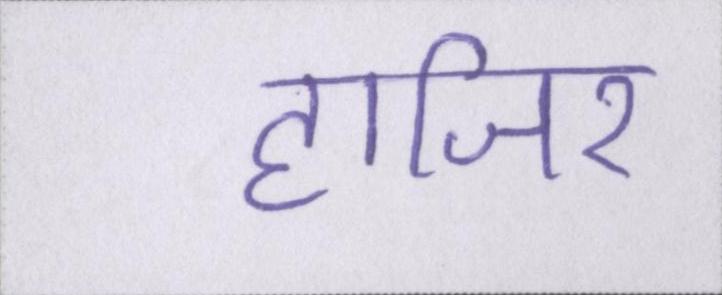 हाजिर